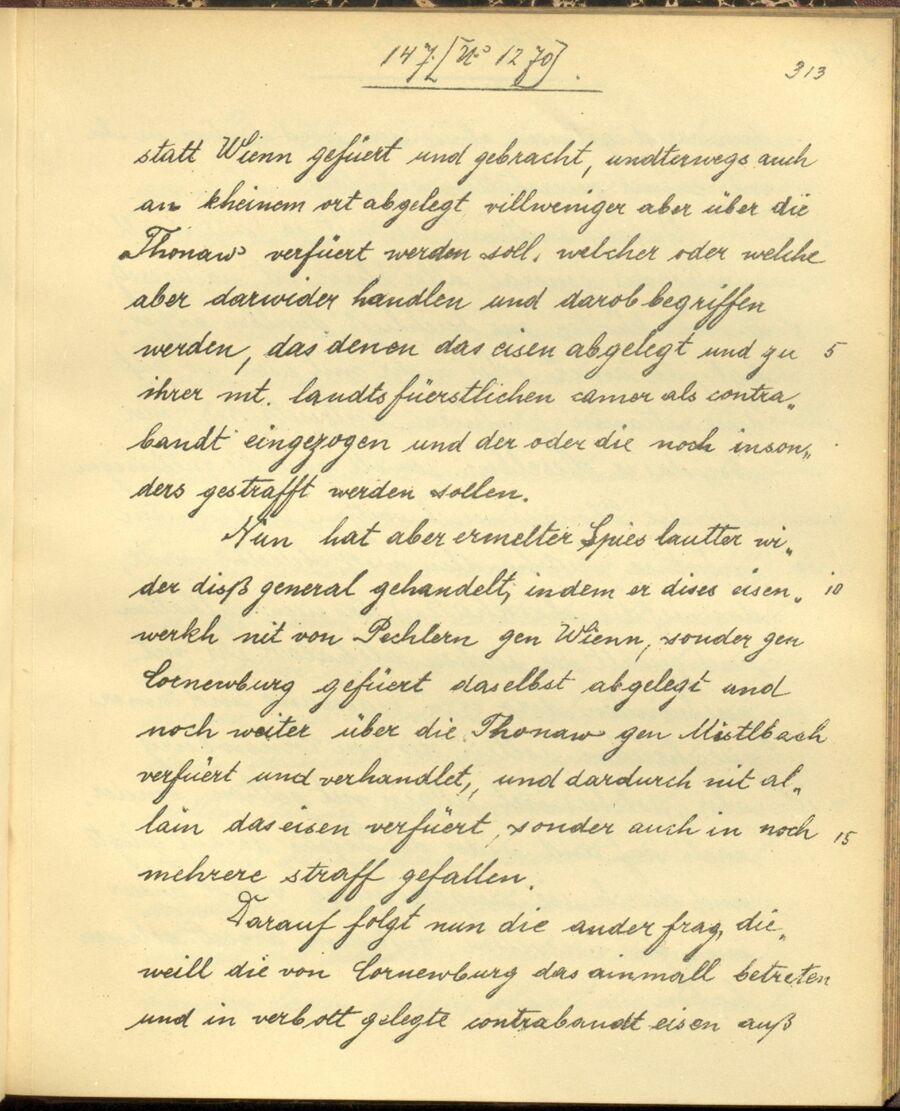 147. [No 1270].
313
statt Wienn gefüert und gebracht, undterwegs auch
an kheinem ort abgelegt villweniger aber über die
Thonaw verfüert werden soll, welcher oder welche
aber darwider handlen und darob begriffen
werden, das denen das eisen abgelegt und zu 5
ihrer mt. landtsfüerstlichen camer als contra„
bandt eingezogen und der oder die noch inson„
ders gestrafft werden sollen.
Nun hat aber ermelter Spieslautter wi„
der disß general gehandelt, indem er dises eisen„ 10
werkh nit von Pechlern gen Wienn, sonder gen
Cornewburg gefüert daselbst abgelegt und
noch weiter über die Thonaw gen Mistlbach
verfüert und verhandlet, und dardurch nit al„
lain das eisen verfüert, sonder auch in noch 15
mehrere straff gefallen.
Darauf folgt nun die ander frag, die„
weill die von Cornewburg das ainmall betreten
und in verbott gelegte contrabandt eisen auß